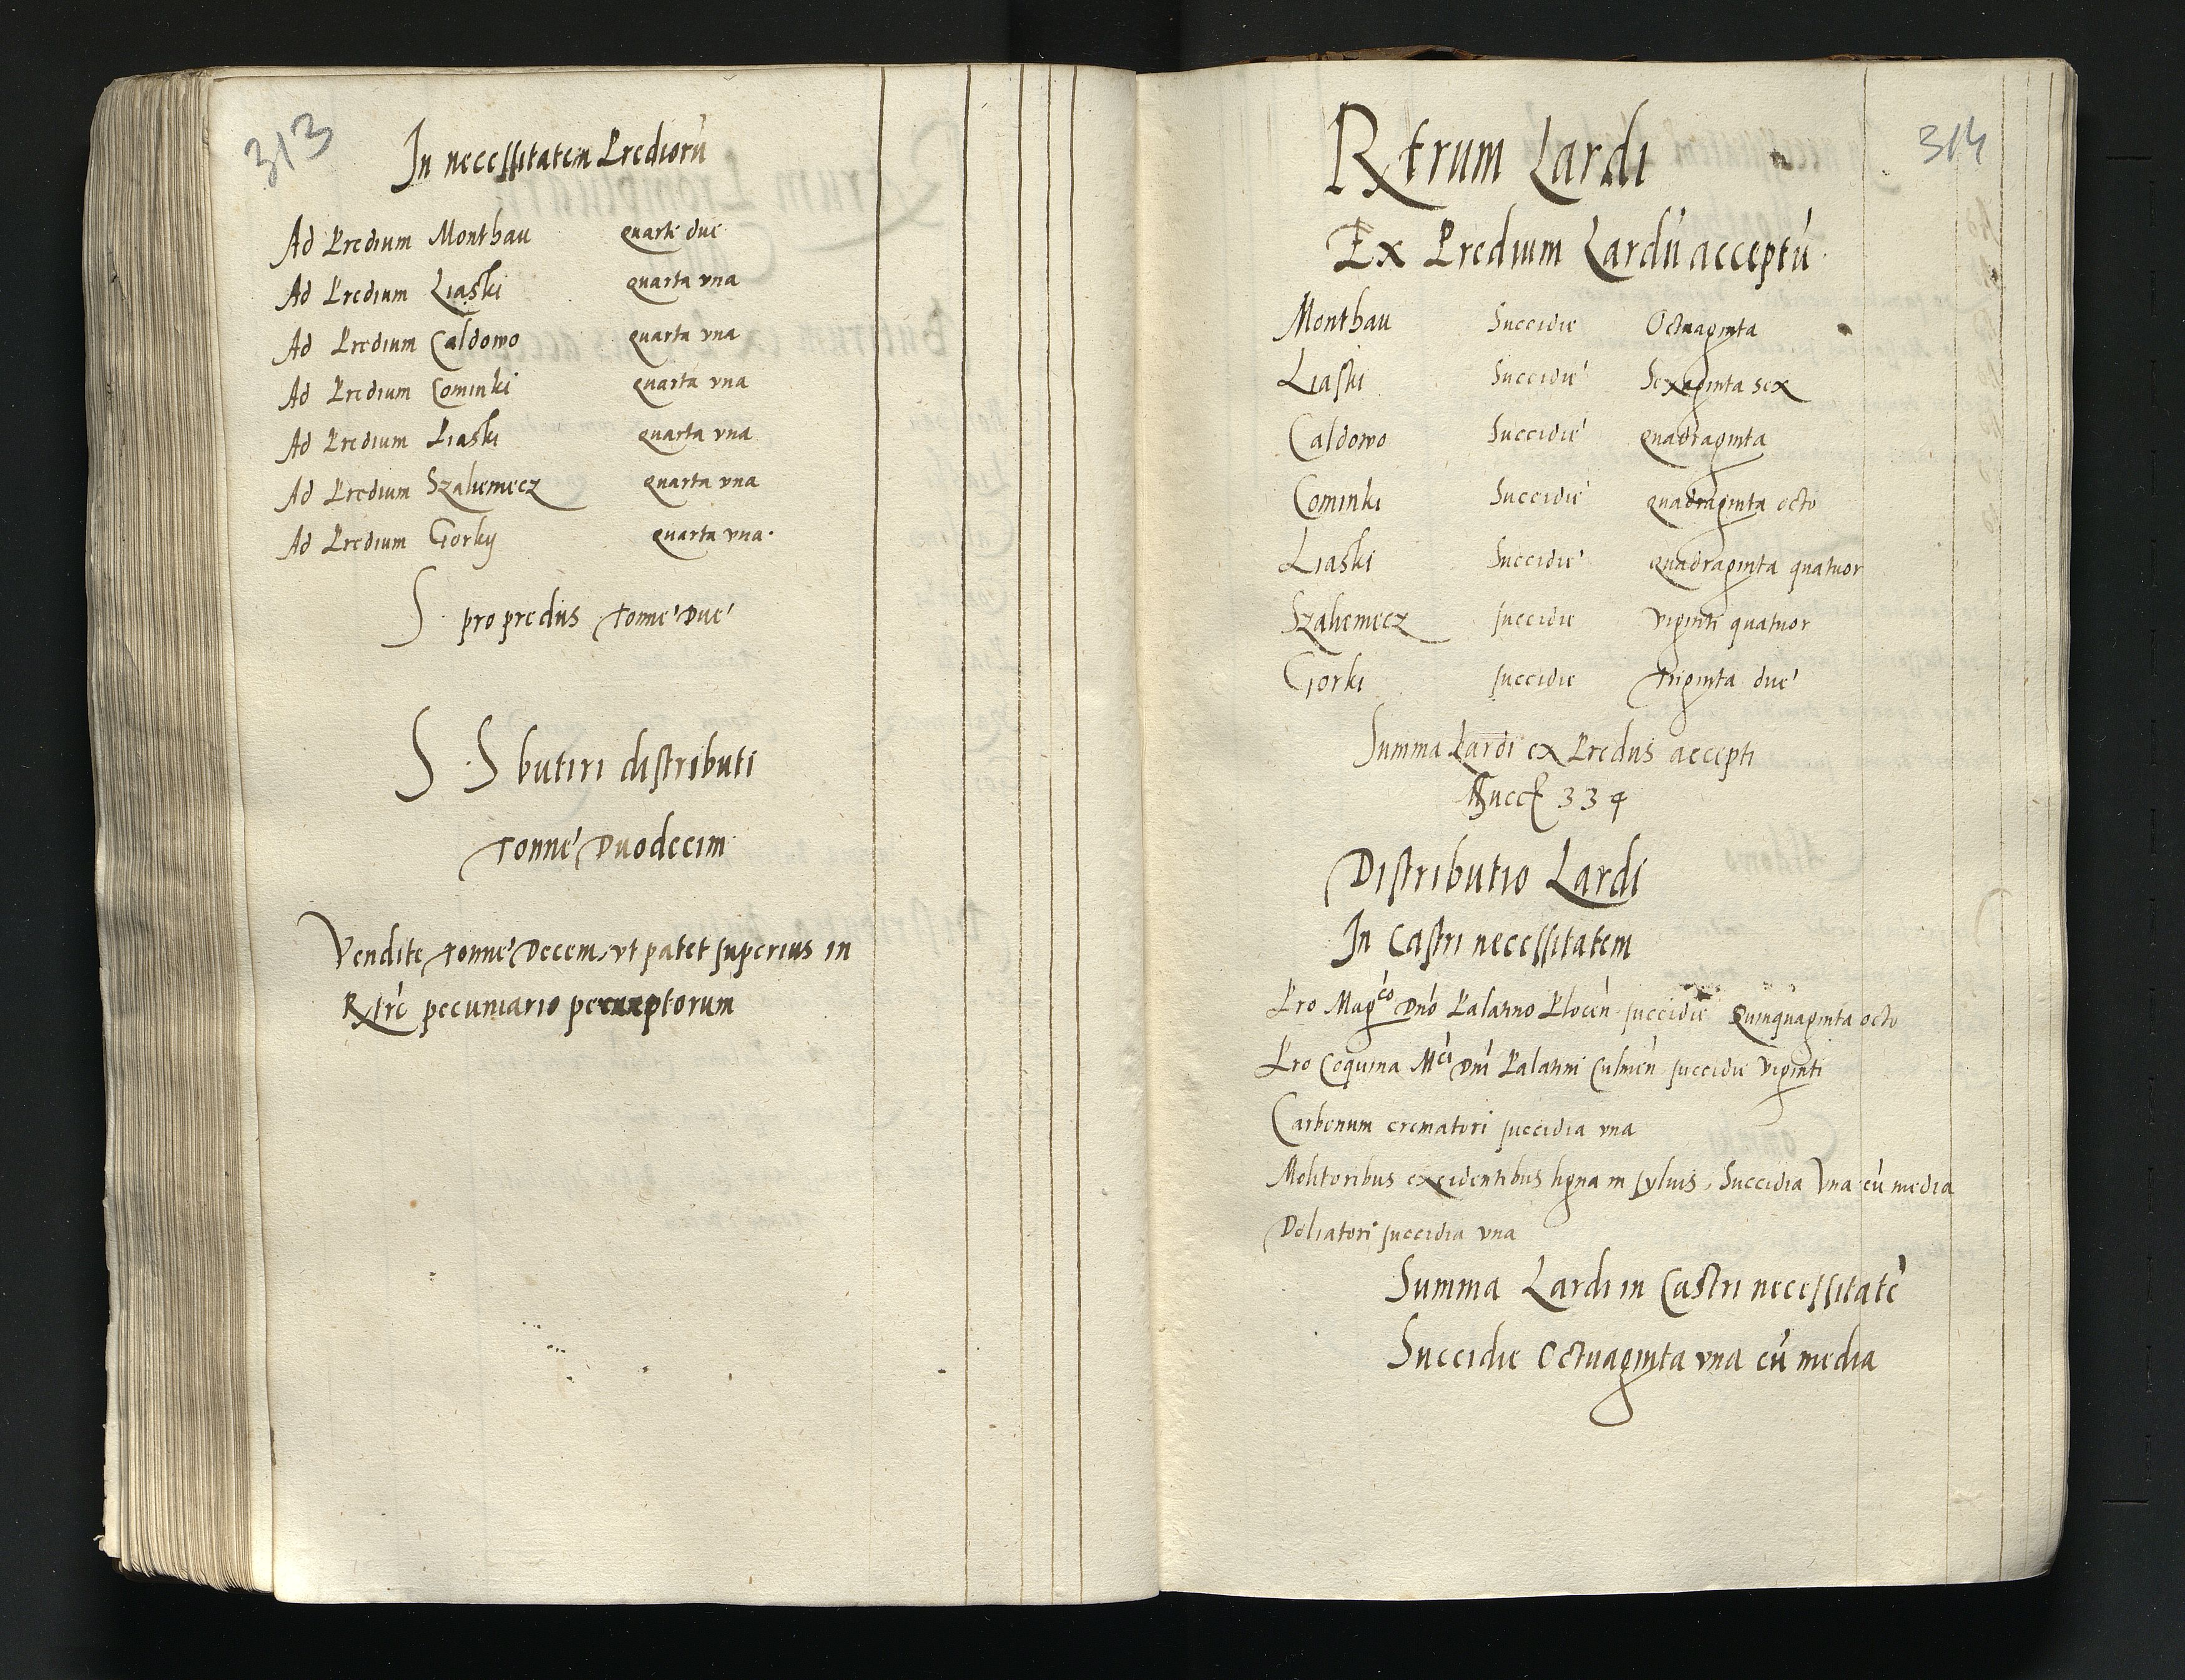 313
In necessitatem Prediorú
Ad Predium Monthau quarte due
Ad Predium Liaski quarta vna
Ad Predium Caldowo quarta vna
Ad Predium Cominki quarta vna
Ad Predium Liaski quarta vna
Ad Predium Szaliemecz quarta vna
Ad Predium Gorky quarta vna.
S pro predijs Tonne Due
S S butiri distributi
Tonne Duodecim
Vendite Tonne Decem, vt patet superius in
Rtrè pecuniario perceptorum
314
Rtrum Lardi
Ex Predium Lardú acceptú
Monthau Succidie Octuaginta
Liaski Succidie Sexaginta sex
Caldowo Succidie quadraginta
Cominki Succidie quadraginta octo
Liaski Succidie quadraginta quatuor
Szaliemecz succidie viginti quatuor
Gorki succidie triginta due
Summa Lardi ex Predijs accepti
Succ 334
Distributio Lardi
In Castri necessitatem
Pro Mag^co Dno Palatino Plocen succidie Quinquaginta octo
Pro Coquina M^ci Dni Palatini Culmen succidie viginti
Carbonum crematori succidia vna
Molitoribus excidentibus ligna in syluis, Succidia Vna cú media
Doliatori succidia vna
Summa Lardi in Castri necessitatè
Succidie Octuaginta vna cú media